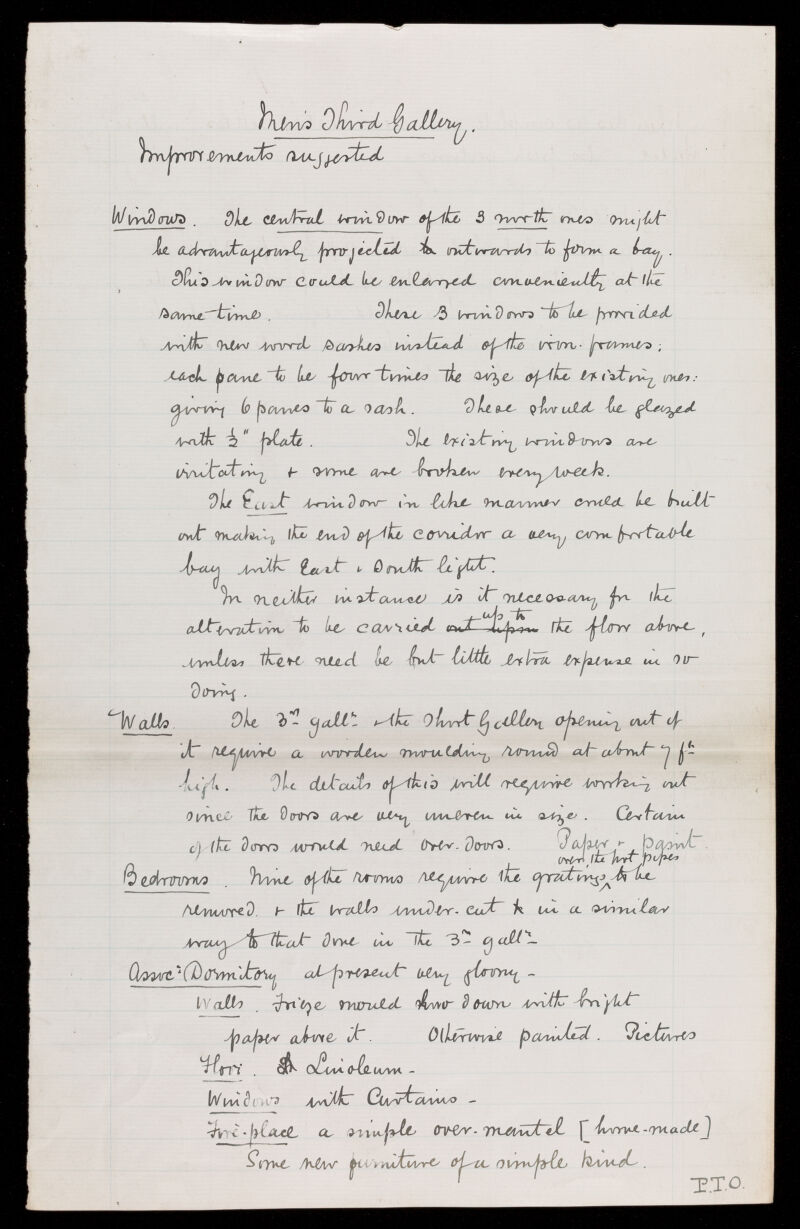 Men's Third Gallery.
Improvements suggested
Windows. The central window of the 3 north ones might
be advantageously projected outwards to form a bay.
This window could be enlarged conveniently at the
same time. These 3 windows to be provided
with new wood sashes instead of the iron-frames;
each pane to be four times the size of the existing ones:
giving 6 panes to a sash. These should be glazed
with ½" plate. The existing windows are
irritating & some are broken every week.
The East window in like manner could be built
out making the end of the corridor a very comfortable
bay with East & South light.
In neither instance is it necessary for the
alteration to be carried out upon up to the floor above,
unless there need be but little extra expense in so
doing.
Walls. The 3rd gally & the Short Gallery opening out of
it require a wooden moulding round at about 7 ft
high. The details of this will require working out
since the doors are very uneven in size. Certain
of the doors would need over-doors. Paper & paint.
Bedrooms. Nine of the rooms require the gratings over the hot pipes to be
removed & the walls under-cut in a similar
way to that done in the 3rd gally
Assocd Dormitory at present very gloomy -
Walls. Frieze mould down with bright
paper above it. Otherwise painted. Pictures
Floor. Linoleum -
Windows with Curtains -
Fire-place a simple over-mantel [home-made]
Some new furniture of a simple kind.
P.T.O.